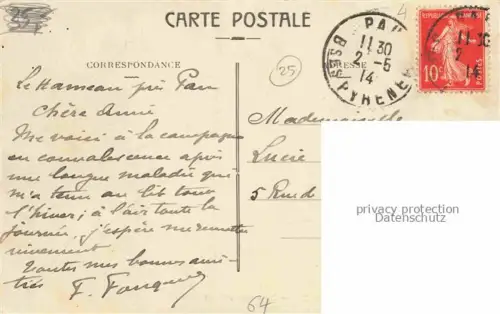 CARTE POSTALE
CORRESPONDANCE
ADRESSE
PAU
11-30
2-5
14
BSES PYRENEES
10c
11-30
2
14
25
Le Hameau près Pau
Chère Amie
Me voici à la campagne
en convalescence après
une longue maladie qui
m'a tenu au lit tout
l'hiver; à l'air toute la
journée, j'espère me remettre
vivement
Toutes mes bonnes ami-
tiés F.
Mademoiselle
Lucie
5 Rue d
privacy protection
Datenschutz
64